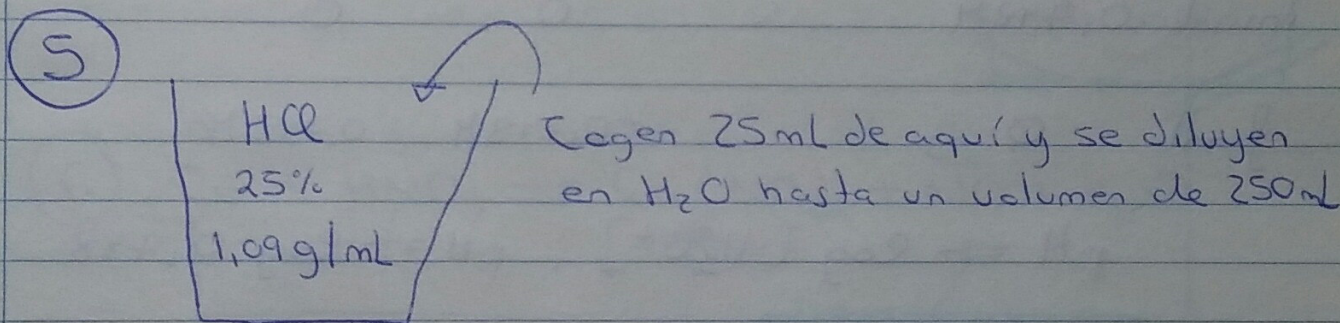 5
HCl
25%
1,09g/mL
Cogen 25mL de aquí y se diluyen
en H₂O hasta un volumen de 250mL